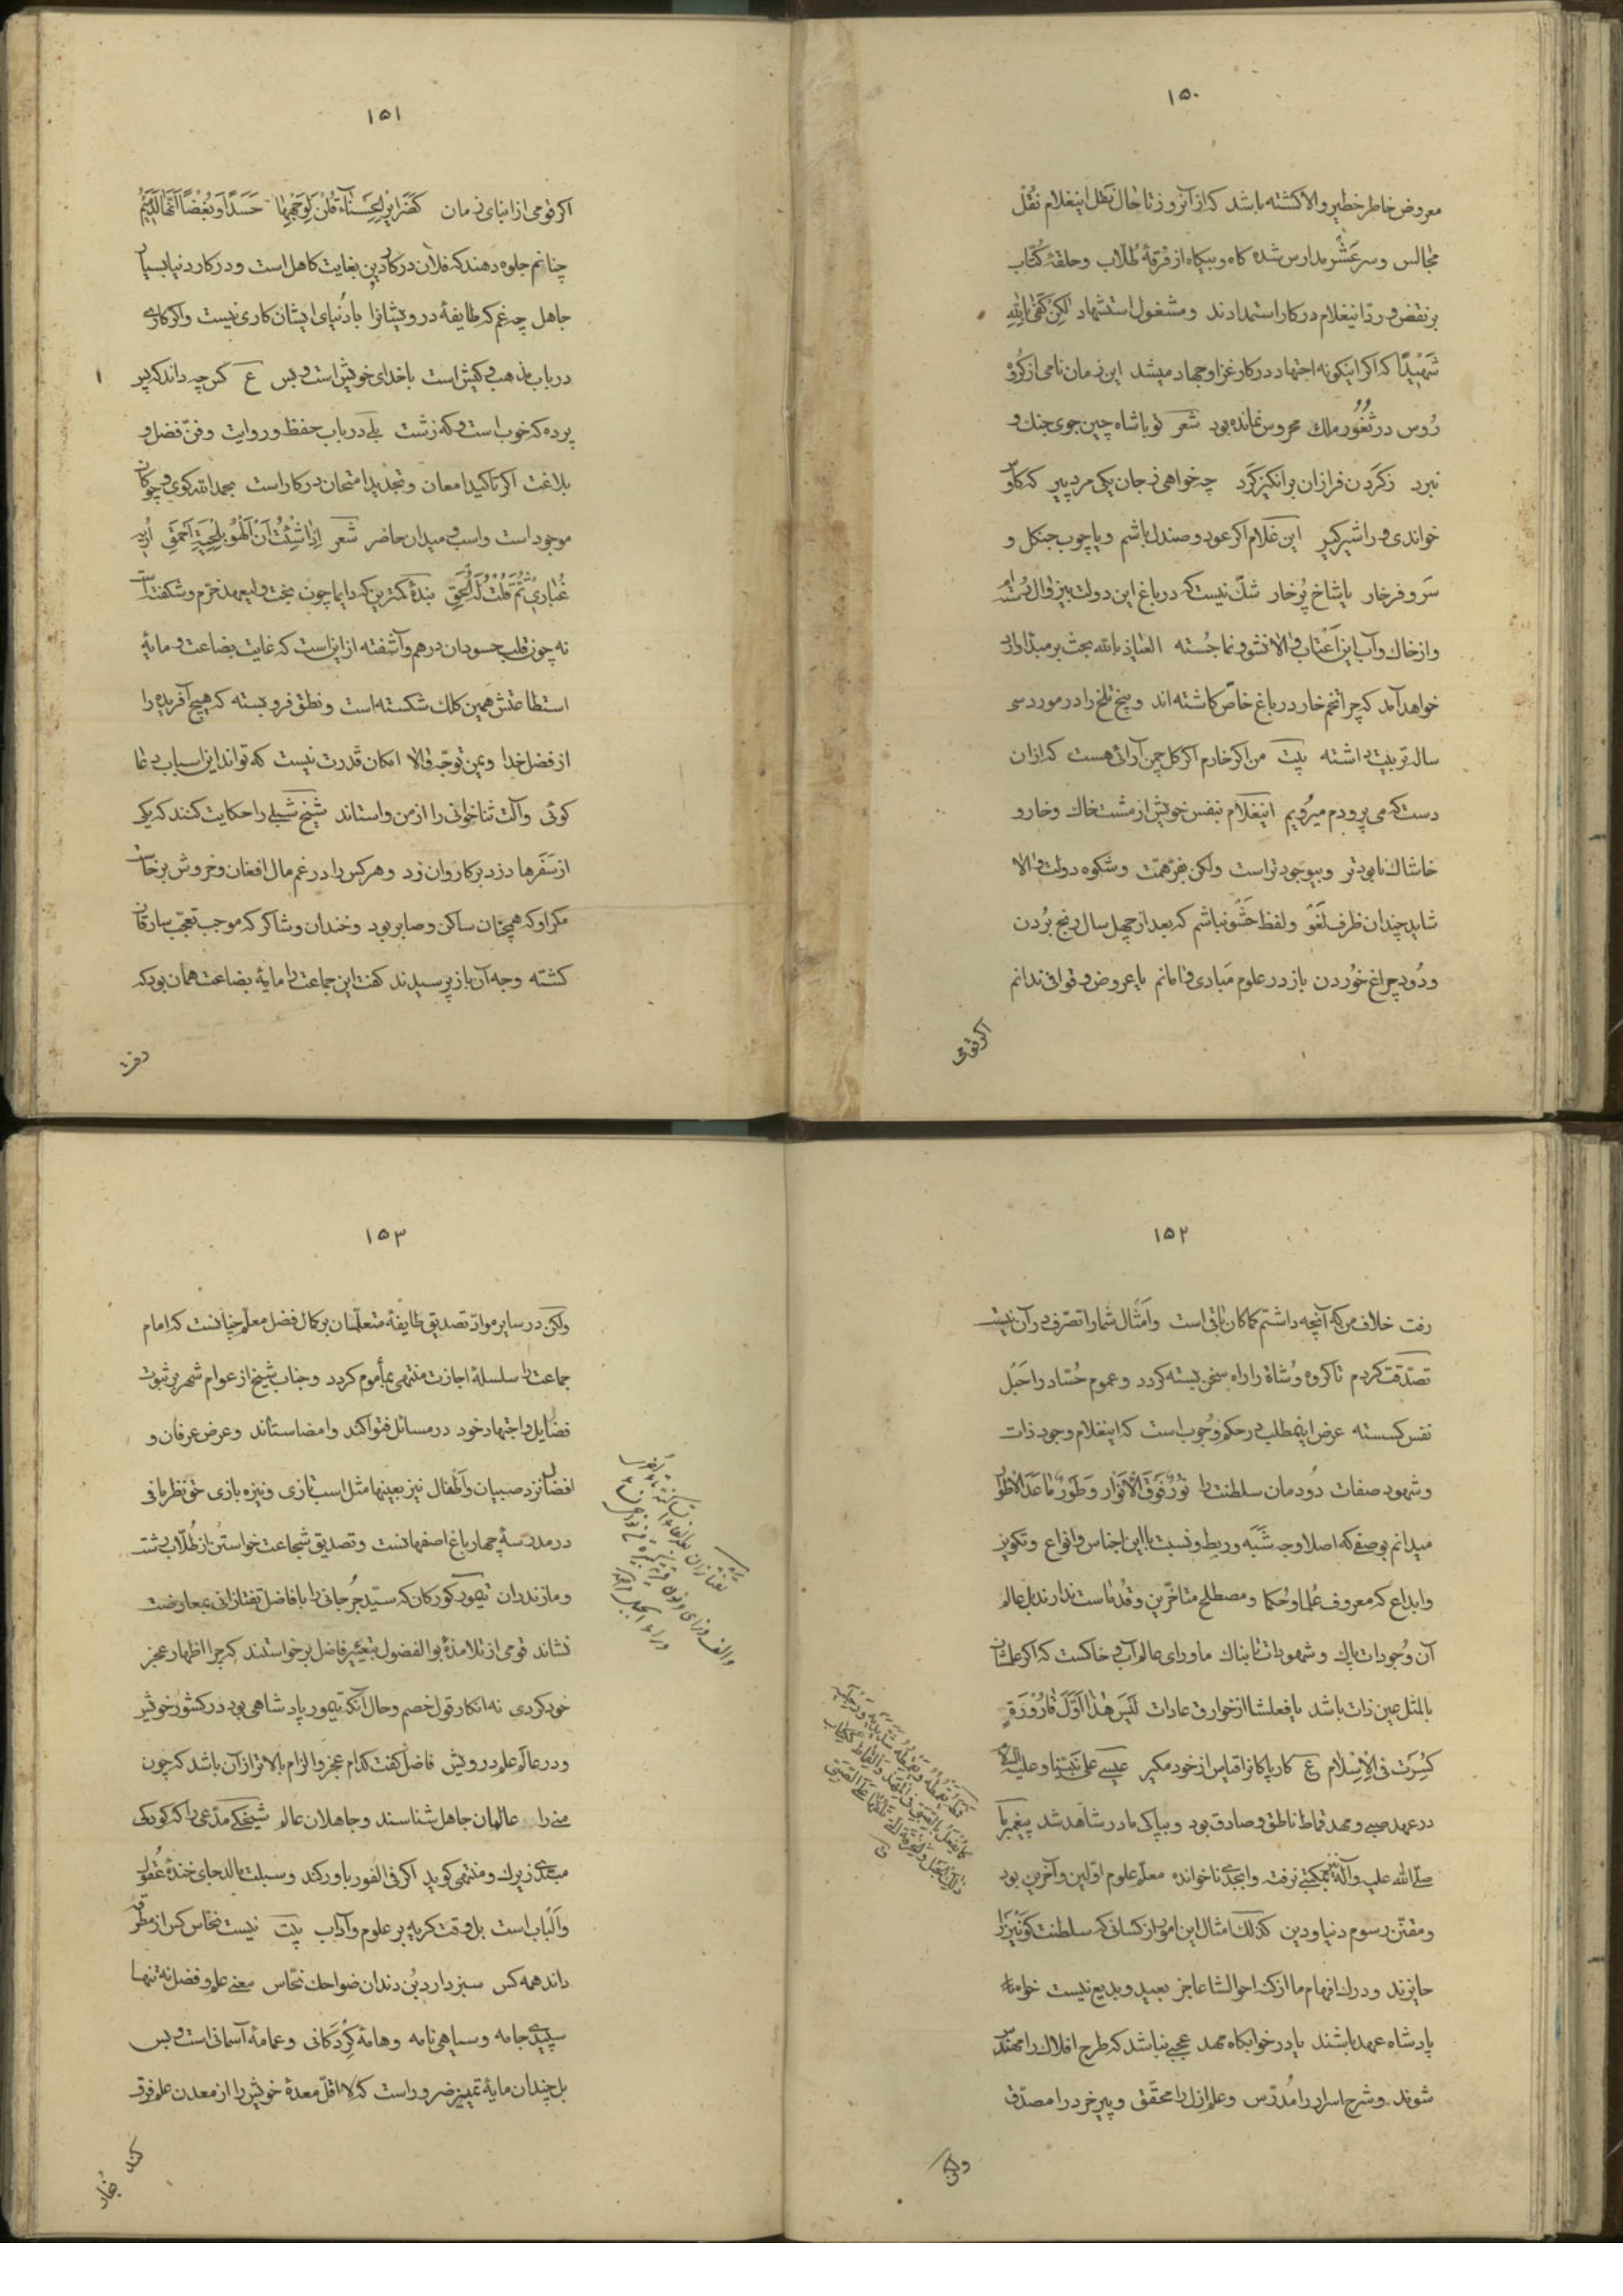 ۱۵۰
معروض خاطر خطیر والا کشته باشد که از آنروز تا حال نقل اینغلام نقل
مجالس و سر عشر مدارس شده کاه و بیکاه از فرقهٔ طلاب و حلقهٔ کتاب
بر نقض و رد اینغلام در کار استمدادند و مشغول استشهاد لکن کفی بالله
شهیدا که اکر اینکونه اجتهاد در کار غزا و جهاد میشد این زمان نامی از کروه
روس در ثغور ملک محروس نمانده بود شعر تو با شاه چین جوی جنک و
نبرد ز کردن فرازان برانکیز کرد چه خواهی ز جان یکی مرد پیر که کاوس
خواندی ورا شیرکیر این غلام اکر عود و صندل باشم و یا چوب جنکل و
سرو فرخار یا شاخ پُرخار شک نیست که در باغ این دولت بیزوال رسته ام
و از خاک و آب این اعتاب والا نشو و نما جسته العیاذ بالله بحث بر مبدا وارد
خواهد آمد که چرا تخم خار در باغ خاص کاشته اند و بیخ تلخ را در مورد سی
ساله تربیت داشته بیت من اکر خارم اکر کل چمن آرائی هست که از ان
دست که می پروردم میرویم اینغلام بنفس خویش از مشت خاک و خار و
خاشاک نابودتر و بیوجودتر است ولکن بفر همت و شکوه دولت والا
شاید چندان ظرف لغو و لفظ حشو نباشم که بعد از چهل سال رنج بردن
و دود چراغ خوردن باز در علوم مبادی وامانم یا عروض و قوافی ندانم
اکر قومی
۱۵۱
اکر قومی از ابنای زمان کضرایر الحسناء قلن لوجهها حسدا و بغضا انها لدمیم
چنانم جلوه دهند که فلان در کار دین بغایت کاهل است و در کار دنیا بسیار
جاهل چه غم که طایفهٔ درویشانرا با دنیای ایشان کاری نیست و اکر کاری
در باب مذهب و کیش است با خدای خویش است و بس ع کس چه داند که پس
پرده که خوب است و که زشت بلی در باب حفظ و روایت و فن فضل و
بلاغت اکر تاکید امعان و تجدید امتحان در کار است بحمد الله کوی و چوکان
موجود است و اسب و میدان حاضر شعر اذا شئت ان الهو بلحیة احمق اریه
غباری ثم قلت له الحق بندهٔ کمترین که دایما چون بخت ولیعهد خرم و شکفته است
نه چون قلب حسودان درهم و آشفته از این است که غایت بضاعت و مایهٔ
استطاعتش همین کلک شکسته است و نطق فرو بسته که هیچ آفریده را
از فضل خدا و یمن توجه والا امکان قدرت نیست که تواند این اسباب دعا
کوئی و آلت ثناخوانی را از من واستاند شیخ شبلی را حکایت کنند که یکی
از سفرها دزد بر کاروان زد و هر کس را در غم مال افغان و خروش برخاست
مکر او که همچنان ساکن و صابر بود و خندان و شاکر که موجب تعجب سارقان
کشته وجه آن باز پرسیدند کفت این جماعت را مایهٔ بضاعت همان بود که
رفت
۱۵۲
رفت خلاف من که آنچه داشتم کماکان باقی است و امثال شما را تصرف در آن نیست
تصدقت کردم تا کروه وشاة را راه سخن بسته کردد و عموم حساد را حبل
نفس کسسته عرض اینمطلب در حکم وجوب است که اینغلام وجود ذات
و شهود صفات دودمان سلطنت را نور فوق الانوار و طور ما عدا الاطوار
میدانم بوصفی که اصلا وجه شبه و ربط و نسبت با این اجناس و انواع و تکوین
و ابداع که معروف علما و حکما و مصطلح متاخرین و قدماست ندارند بل عالم
آن وجودات پاک و شهودات تابناک ماورای عالم آب و خاکست که اکر علمشان
بالمثل عین ذات باشد یا فعلشان از خوارق عادات لیس هذا اول قارورة
کسرت فی الاسلام ع کار پاکانرا قیاس از خود مکیر عیسی علی نبینا و علیه السلام
در عهد صبی و مهد قماط ناطق و صادق بود و بپاکی مادر شاهد شد پیغمبر ما
صلی الله علیه و آله بمکتبی نرفته و ابجدی ناخوانده معلم علوم اولین و آخرین بود
و مقنن رسوم دنیا و دین کذلک امثال این امور از کسانی که سلطنت کونین را
حایزند و درک افهام ما از کنه احوالشان عاجز بعید و بدیع نیست خواه
پادشاه عهد باشند یا در خوابکاه مهد عجبی نباشد که طرح افلاک را مهندس
شوند و شرح اسرار را مدرس و علم ازل را محقق و پیر خرد را مصدق
ولکن
۱۵۳
ولکن در سایر مواد تصدیق طایفهٔ متعلمان بر کمال فضل معلم چنانست که امام
جماعت را سلسلهٔ اجازت منتهی بمأموم کردد و جناب شیخ از عوام شهر بر ثبوت
فضایل و اجتهاد خود در مسائل فتوا کند و امضا ستاند و عرض عرفان و
افضال نزد صبیان و اطفال نیز بعینها مثل اسب تازی و نیزه بازی حق نظر بافی
در مدرسهٔ چهار باغ اصفهانست و تصدیق شجاعت خواستن از طلاب رشت
و مازندران تیمور کورکان که سید جرجانی را با فاضل تفتازانی بمعارضت
نشاند قومی از تلامذهٔ بوالفضول بتعییر فاضل برخواستند که چرا اظهار عجز
خود کردی نه انکار قول خصم و حال آنکه تیمور پادشاهی بود در کشور خویش
و در عالم علم درویش فاضل کفت کدام عجز و الزام بالاتر از آن باشد که چون
منی را عالمان جاهل شناسند و جاهلان عالم شیخکی مدعی را که کودکی
مبتدی زیرک و منتهی کوید اکر فی الفور باور کند و سبلت مالد جای خندهٔ عقول
و الباب است بل وقت کریه بر علوم و آداب بیت نیست نحاس کس از مطرقه
داند همه کس سبز دارد بن دندان ضواحک نحاس معنی علم و فضل نه تنها
سپیدی جامه و سیاهی نامه و هامهٔ کردکانی و عمامهٔ آسمانی است و بس
بل چندان مایهٔ تمییز ضرور است که لا اقل معدهٔ خویش را از معدن علم فرق
کند